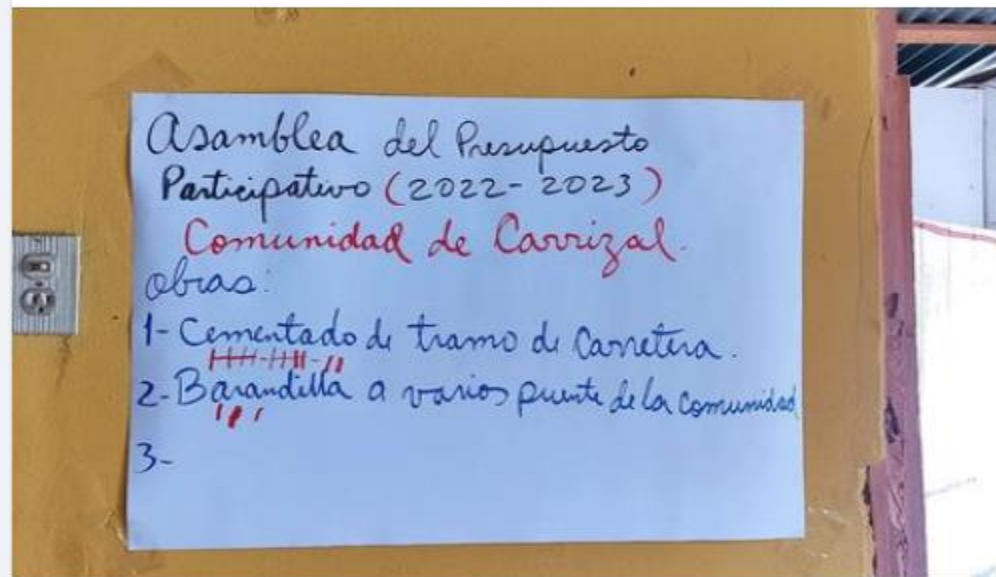 Asamblea del Presupuesto
Participativo (2022-2023)
Comunidad de Carrizal.
Obras:
1- Cementado de tramo de Carretera.
2- Barandilla a varios puente de la Comunidad
3-